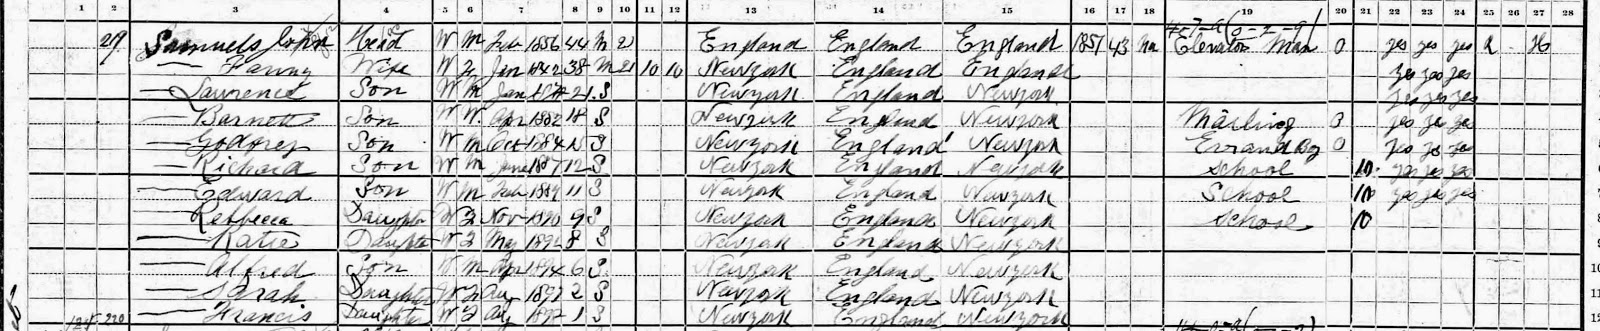 1 2 3 4 5 6 7 8 9 10 11 12 13 14 15 16 17 18 19 20 21 22 23 24 25 26 27 28
29 Samuels John Head W M Feb 1856 44 M 21 England England England 1857 43 Na Elevator Man 0 yes yes yes R H
— Fanny Wife W F Jan 38 M 21 10 10 Newyork England England yes yes yes
— Lawrence Son W M Jan 21 S Newyork England Newyork yes yes yes
— Barnett Son W Apr 1882 18 S Newyork England Newyork yes yes yes
— Godfrey Son W M Oct 1884 15 S Newyork England Newyork Errand Boy 0 yes yes yes
— Richard Son W M June 1887 12 S Newyork England Newyork School 10 yes yes yes
— Edward Son W M Feb 1889 11 S Newyork England Newyork School 10 yes yes yes
— Rebecca Daughter W F Nov 1890 9 S Newyork England Newyork School 10
— Katie Daughter W F May 8 S Newyork England Newyork
— Alfred Son W M Apr 1894 6 S Newyork England Newyork
— Sarah Daughter W F Aug 1897 2 S Newyork England Newyork
220 — Francis Daughter W F 1 S Newyork England Newyork